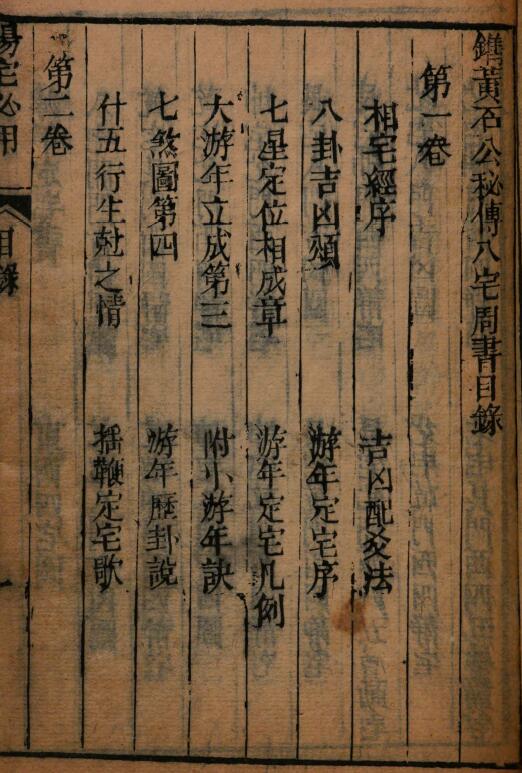 鐫黃石公秘傳八宅周書目錄
第一卷
相宅經序 吉凶配爻法
八卦吉凶頌 游年定宅序
七星定位相成章 游年定宅凡例
大游年立成第三 附小游年訣
七煞圖第四 游年歷卦說
什五行生尅之情 揺鞭定宅歌
第二卷
陽宅必用 目錄 一